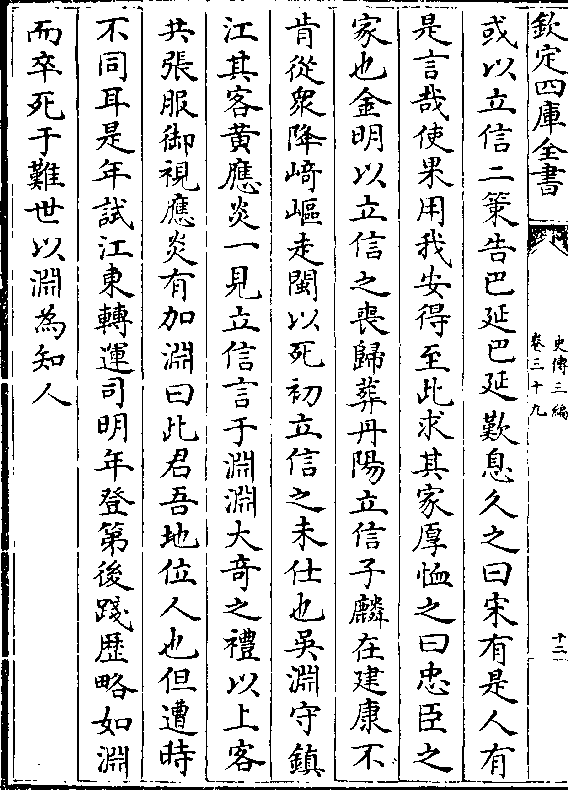 欽定四庫全書
史傳三編
卷三十九
十二
或以立信二策告巴延巴延歎息久之曰宋有是人有
是言哉使果用我安得至此求其家厚恤之曰忠臣之
家也金明以立信之喪歸葬丹陽立信子麟在建康不
肯從衆降崎嶇走閩以死初立信之未仕也吳淵守鎮
江其客黄應炎一見立信言于淵淵大竒之禮以上客
共張服御視應炎有加淵曰此君吾地位人也但遭時
不同耳是年試江東轉運司明年登第後踐歴略如淵
而卒死于難世以淵為知人